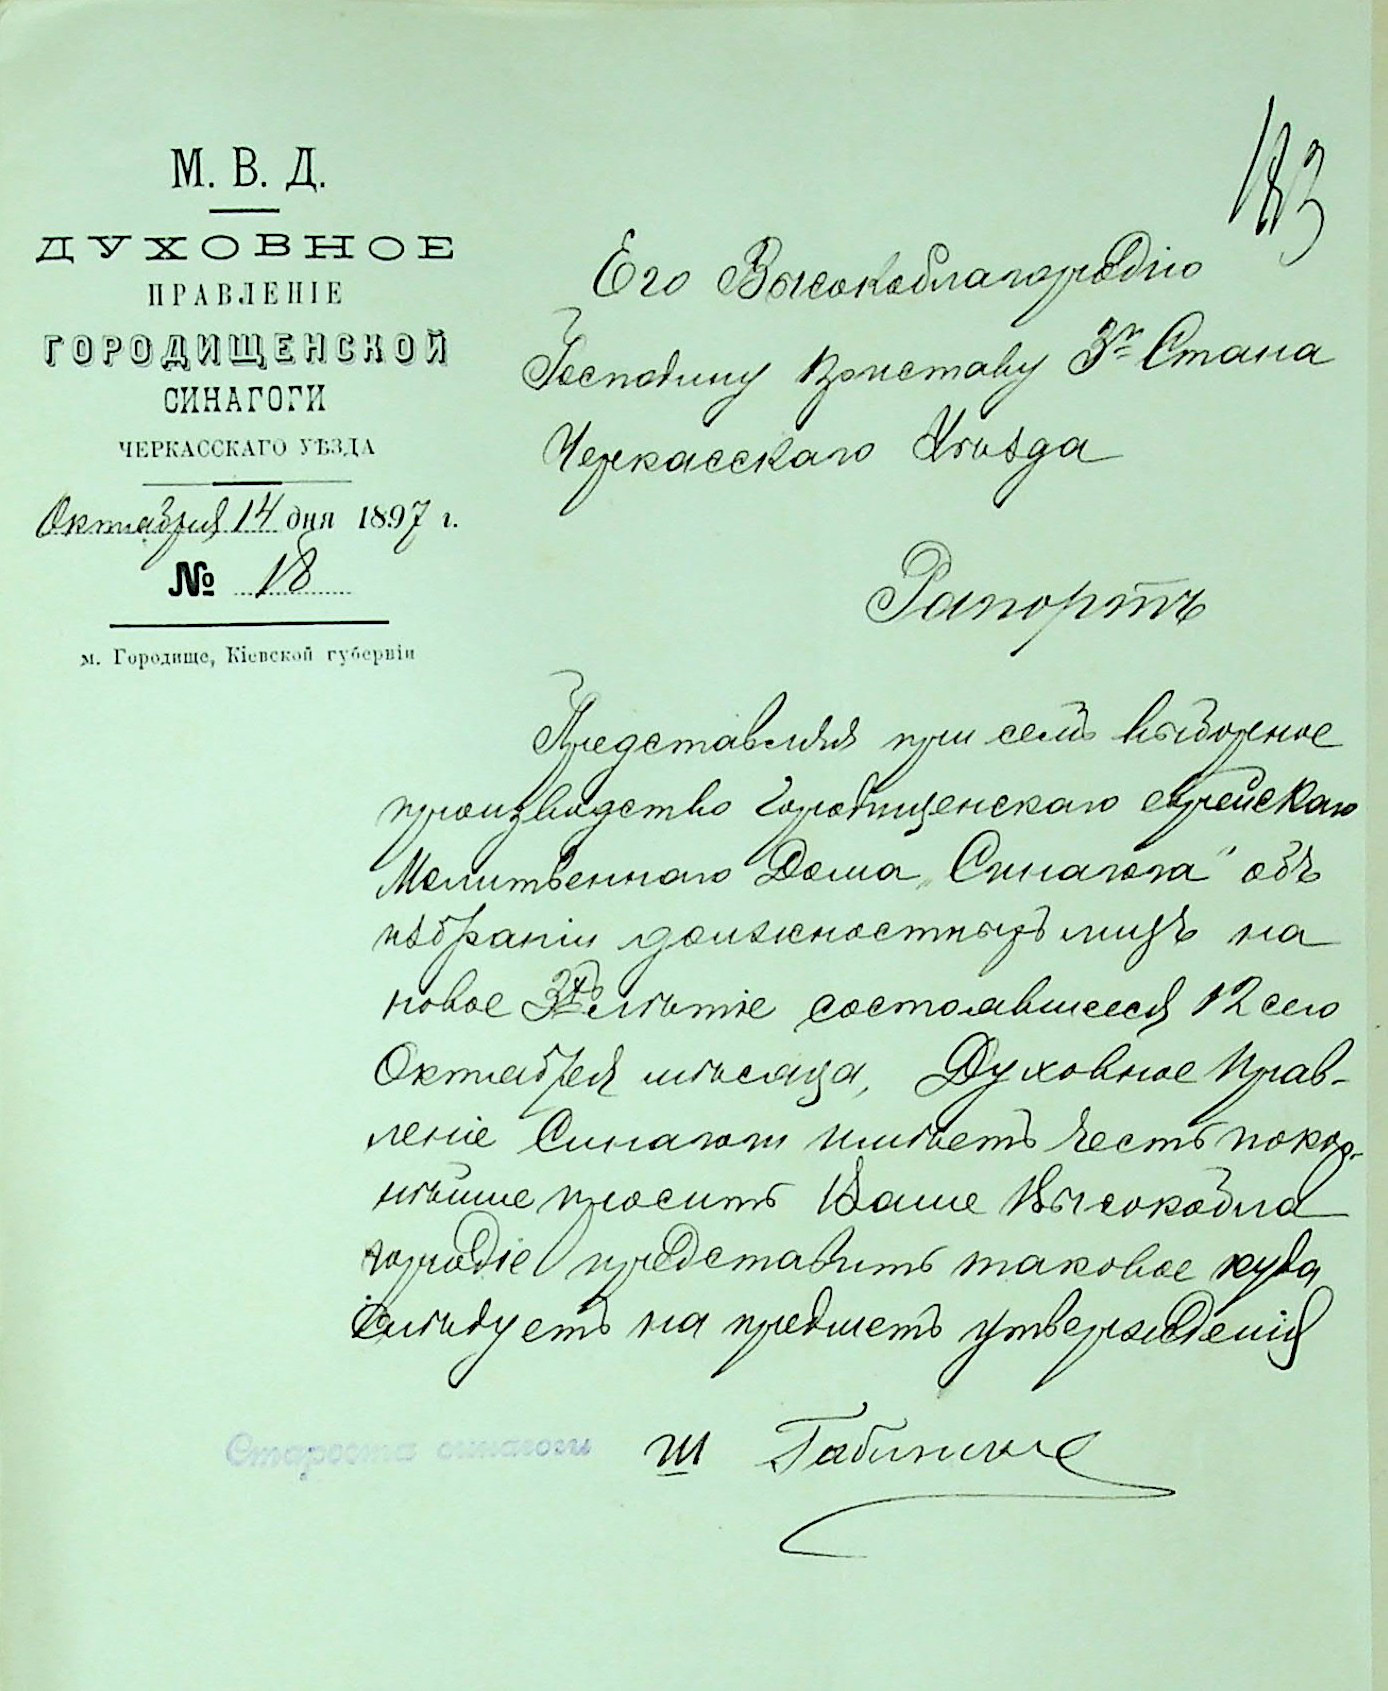 183
М. В. Д.
ДУХОВНОЕ
ПРАВЛЕНІЕ
ГОРОДИЩЕНСКОЙ
СИНАГОГИ
ЧЕРКАССКАГО УѢЗДА
Октября 14 дня 1897 г.
№ 18
м. Городище, Кіевской губерніи
Его Высокоблагородію
Господину Приставу 3го Стана
Черкасскаго Уѣзда
Рапортъ
Представляя при семъ выборное
производство Городищенскаго еврейскаго
Молитвеннаго Дома „Синагога" объ
избраніи должностныхъ лицъ на
новое 3хъ лѣтіе состоявшееся 12 сего
Октября мѣсяца, Духовное Прав-
леніе Синагоги имѣетъ честь покор-
нѣйше просить Ваше Высокобла
городіе представить таковое куда
слѣдуетъ на предметъ утвержденія
Староста синагоги Ш